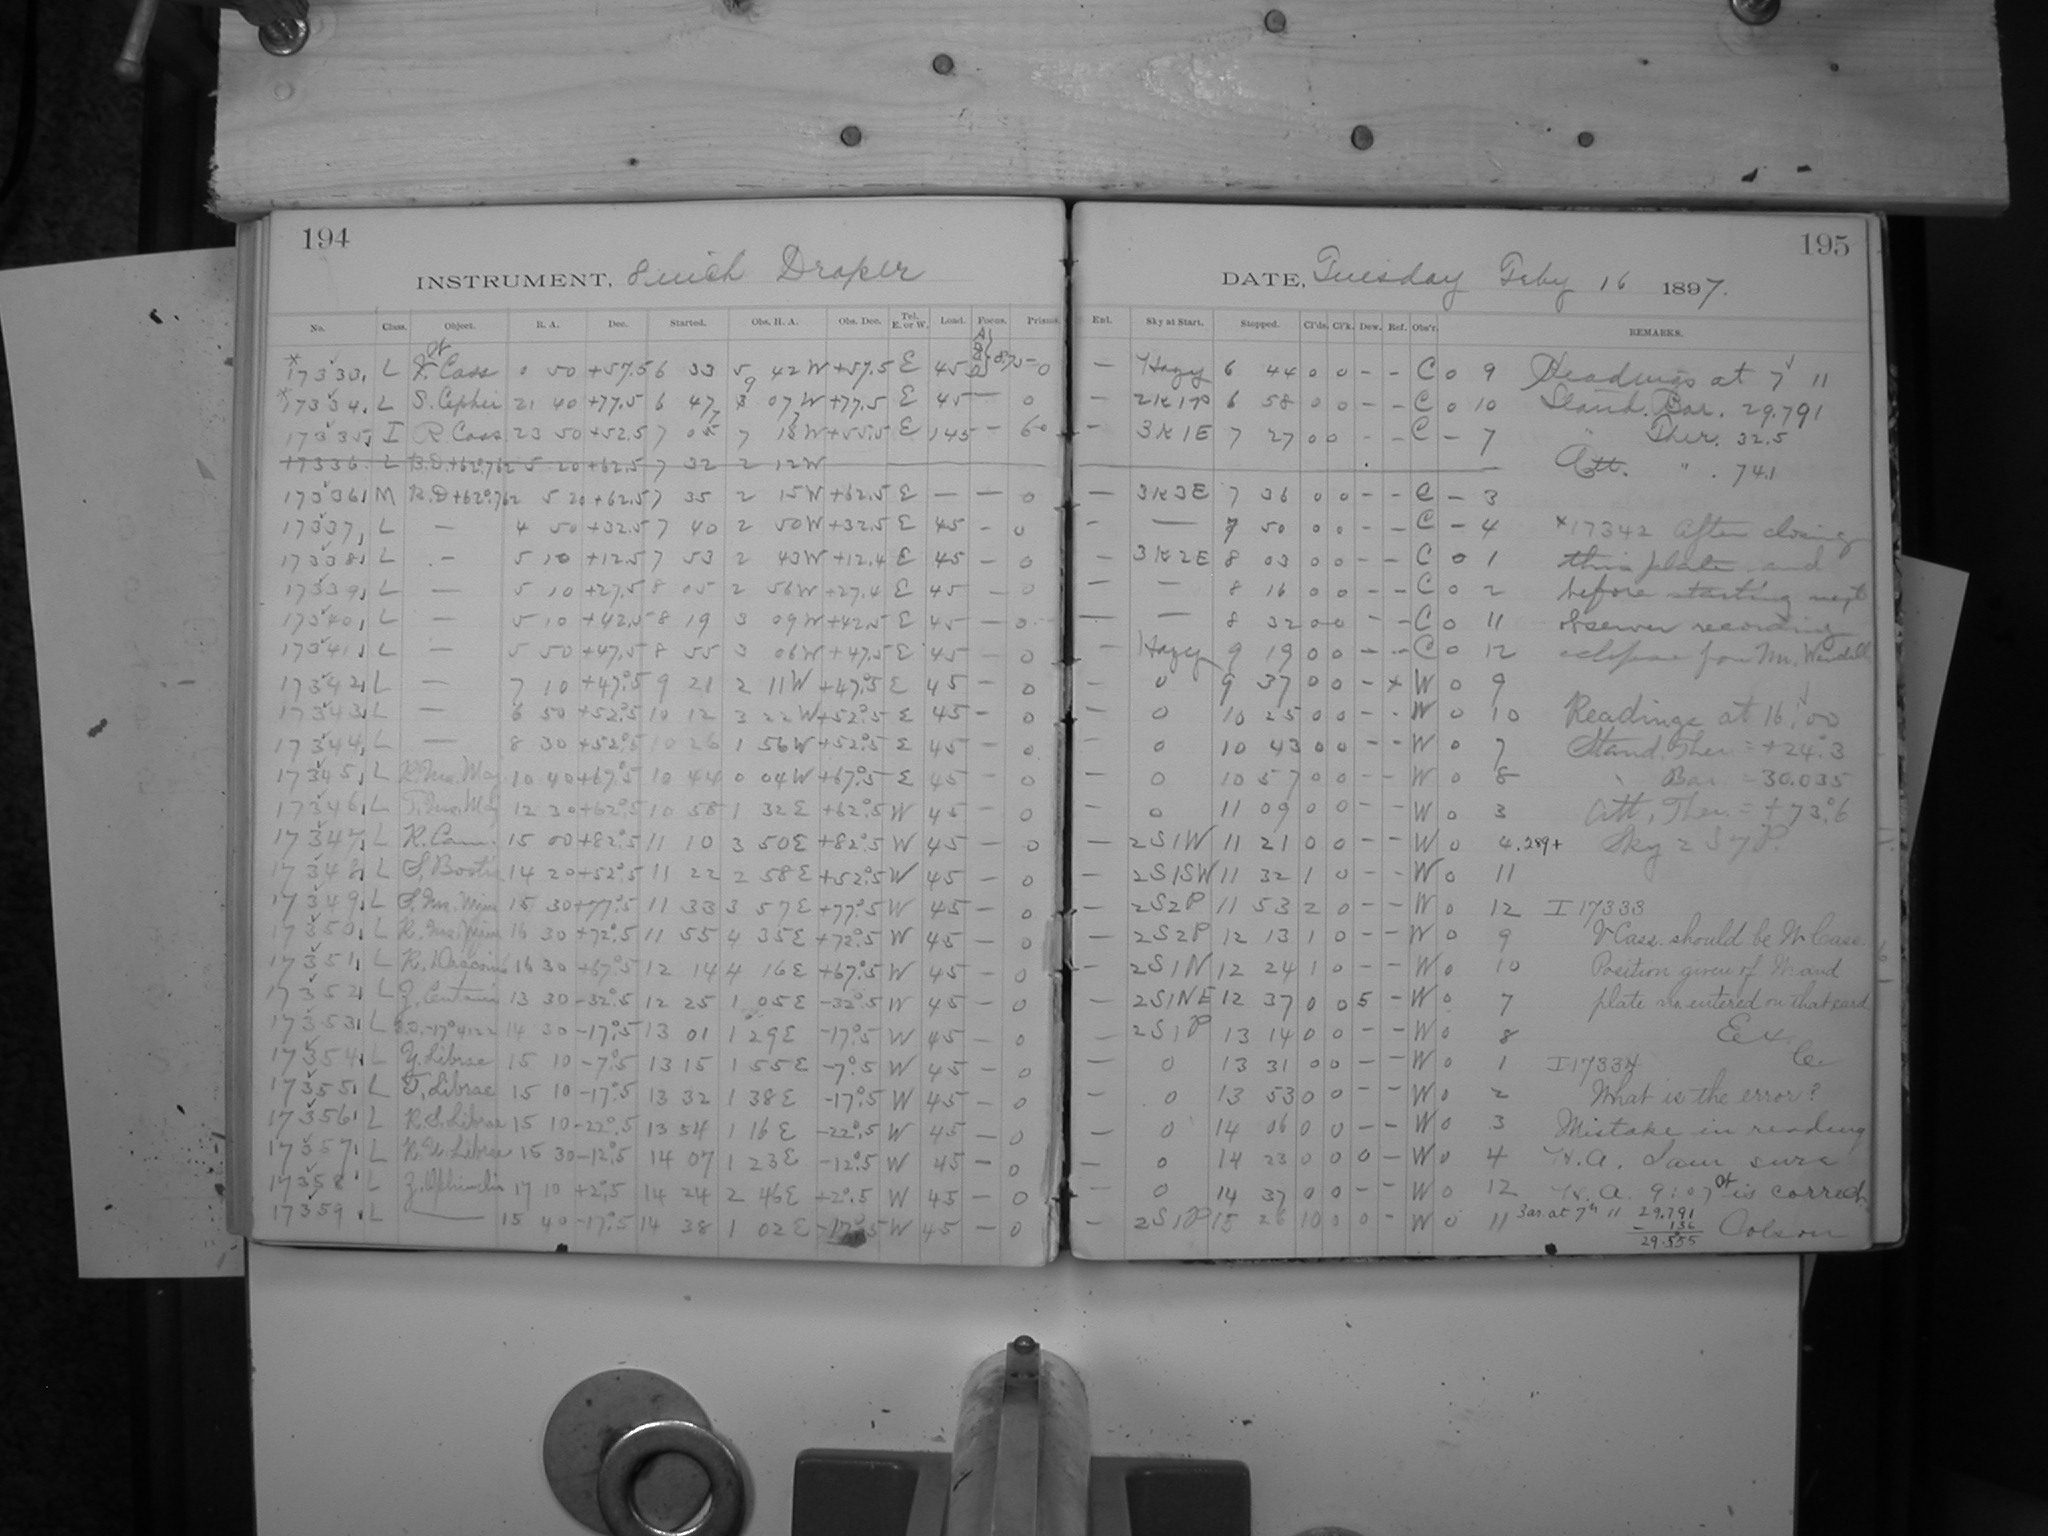 194
INSTRUMENT, 8 inch Draper
No. Class. Object. R. A. Dec. Started. Obs. H. A. Obs. Dec. Tel. E. or W. Load. Focus. Prisms.
17333 L Cass 0 50 +57.5 6 33 5 42W +57.5 E 45 0
17334 L S. Cephei 21 40 +77.5 6 47 07W +77.5 E 45 — 0
17335 I R. Cass 23 50 +52.5 7 7 W E 145 —
17336 L B.D.+62°762 5 20 +62.5 7 32 2 12W
17336 M B.D+62°762 5 20 +62.5 7 35 2 15W +62.5 E — — 0
17337 L — 4 50 +32.5 7 40 2 50W +32.5 E 45 — 0
17338 L — 5 10 +12.5 7 53 2 43W +12.4 E 45 — 0
17339 L — 5 10 +27.5 8 05 2 56W +27.4 E 45 — 0
17340 L — 5 10 +42.5 8 19 3 09W +42.5 E 45 — 0
17341 L — 5 50 +47.5 8 55 3 06W +47.5 E 45 — 0
17342 L — 7 10 +47°.5 9 21 2 11W +47°.5 E 45 — 0
17343 L — 6 50 +52°.5 10 12 3 22W +52°.5 E 45 — 0
17344 L — 8 30 +52°.5 10 26 1 56W +52°.5 E 45 — 0
17345 L R. Urs. Maj. 10 40 +67°.5 10 44 0 04W +67°.5 E 45 — 0
17346 L T. Urs. Maj 12 30 +62°.5 10 58 1 32E +62°.5 W 45 — 0
17347 L R. Cam. 15 00 +82°.5 11 10 3 50E +82°.5 W 45 — 0
17348 L S. Bootis 14 20 +52°.5 11 22 2 58E +52°.5 W 45 — 0
17349 L S. Urs. Min 15 30 +77°.5 11 33 3 57E +77°.5 W 45 — 0
17350 L R. Urs. Min 16 30 +72°.5 11 55 4 35E +72°.5 W 45 — 0
17351 L R. Draconis 16 30 +67°.5 12 14 4 16E +67°.5 W 45 — 0
17352 L Z. Centauri 13 30 -32°.5 12 25 1 05E -32°.5 W 45 — 0
17353 L -17°4122 14 30 -17°.5 13 01 1 29E -17°.5 W 45 — 0
17354 L Y. Librae 15 10 -7°.5 13 15 1 55E -7°.5 W 45 — 0
17355 L T. Librae 15 10 -17°.5 13 32 1 38E -17°.5 W 45 — 0
17356 L R.S. Librae 15 10 -22°.5 13 54 1 16E -22°.5 W 45 — 0
17357 L R.U. Librae 15 30 -12°.5 14 07 1 23E -12°.5 W 45 — 0
17358 L Z. Ophiuchi 17 10 +2°.5 14 24 2 46E +2°.5 W 45 — 0
17359 L — 15 40 -17°.5 14 38 1 02E -17°.5 W 45 — 0
195
DATE, Tuesday Feby 16 1897.
Ent. Sky at Start. Stopped. Cl'ds. Cl'k. Dew. Ref. Obs'r. REMARKS.
— Hazy 6 44 0 0 - - C 0 9 Readings at 7 11
— 2K1P 6 58 0 0 - - C 0 10 Stand. Bar. 29.791
— 3K1E 7 27 0 0 - - C - 7 " Ther. 32.5
Att. " . 74.1
— 3K3E 7 36 0 0 - - C - 3
— — 7 50 0 0 - - C - 4 *17342 After closing
— 3K2E 8 03 0 0 - - C 0 1 this plate and
— — 8 16 0 0 - - C 0 2 before starting next
— — 8 32 0 0 - - C 0 11 observer recording
— Hazy 9 19 0 0 - - C 0 12 eclipse for Mr. Wendell
— 0 9 37 0 0 - x W 0 9
— 0 10 25 0 0 - - W 0 10 Readings at 16 00
— 0 10 43 0 0 - - W 0 7 Stand. Ther = +24°.3
— 0 10 57 0 0 - - W 0 8 Bar = 30.035
— 0 11 09 0 0 - - W 0 3 Att. Ther. = +73°.6
— 2S1W 11 21 0 0 - - W 0 4 .289+ Sky 2S7P.
— 2S1SW 11 32 1 0 - - W 0 11
— 2S2P 11 53 2 0 - - W 0 12 I 17333
— 2S2P 12 13 1 0 - - W 0 9 V Cass. should be W Cass.
— 2S1N 12 24 1 0 - - W 0 10 Position given of W and
— 2S1NE 12 37 0 0 5 - W 0 7 plate was entered on that card
— 2S1P 13 14 0 0 - - W 0 8 Ex.
— 0 13 31 0 0 - - W 0 1 I 17334
— 0 13 53 0 0 - - W 0 2 What is the error?
— 0 14 06 0 0 - - W 0 3 Mistake in reading
— 0 14 23 0 0 0 - W 0 4 H.A. I am sure
— 0 14 37 0 0 - - W 0 12 H.A. 9:07 is correct.
— 2S1P 15 26 10 0 0 - W 0 11 Bar. at 7h 11 29.791
136
Colson